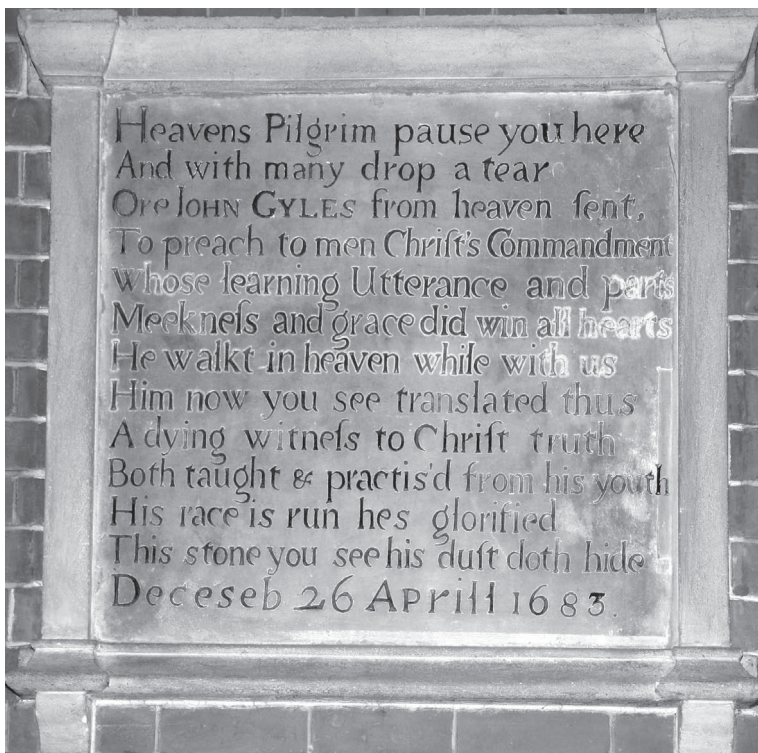 Heavens Pilgrim pause you here
And with many drop a tear
Ore IOHN GYLES from heaven ſent,
To preach to men Chriſt's Commandment
Whose learning Utterance and parts
Meekneſs and grace did win all hearts
He walkt in heaven while with us
Him now you see translated thus
A dying witneſs to Chriſt truth
Both taught & practis'd from his youth
His race is run hes glorified
This stone you see his duſt doth hide
Deceseb 26 Aprill 1683.